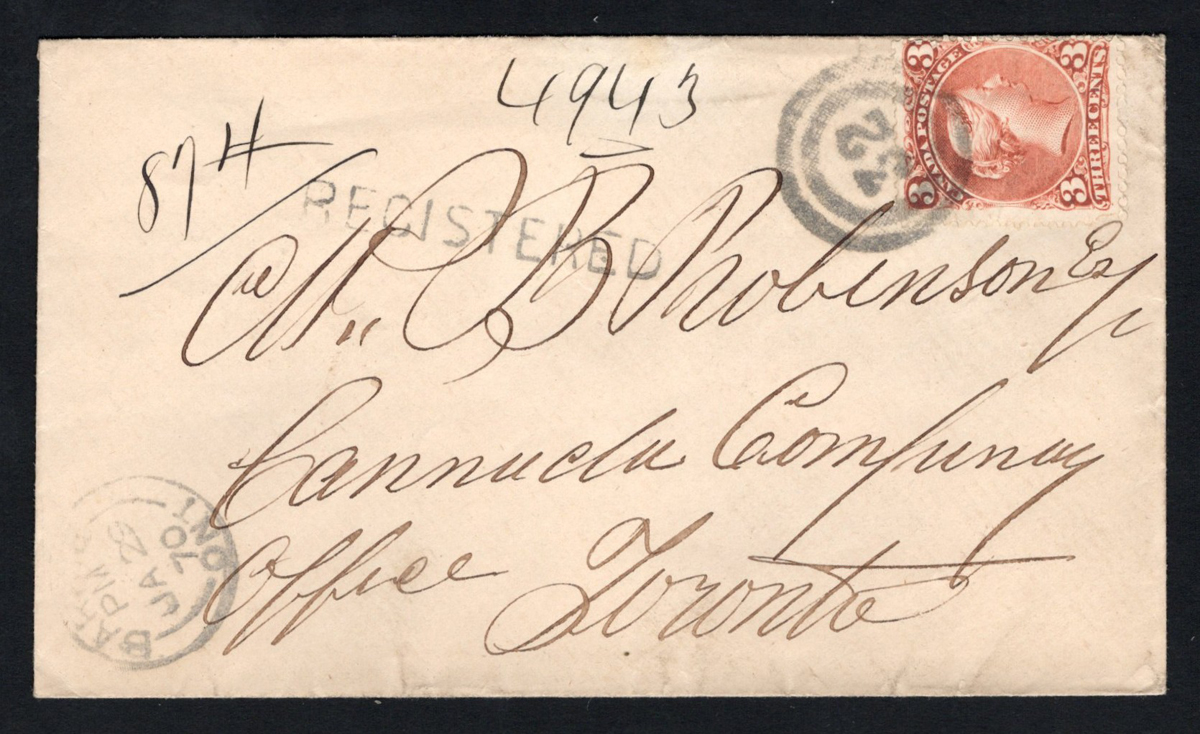 4943
87 H
REGISTERED
22
CANADA POSTAGE
THREE CENTS
3 3 3 3
C B Robinson Esq
Cannada Company
Office Toronto
BARRIE
PM
JA 28
70
ONT